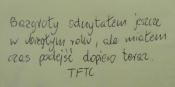 Bazgroły odczytałem jeszcze
w ubiegłym roku, ale miałem
czas podejść dopiero teraz.
TFTC